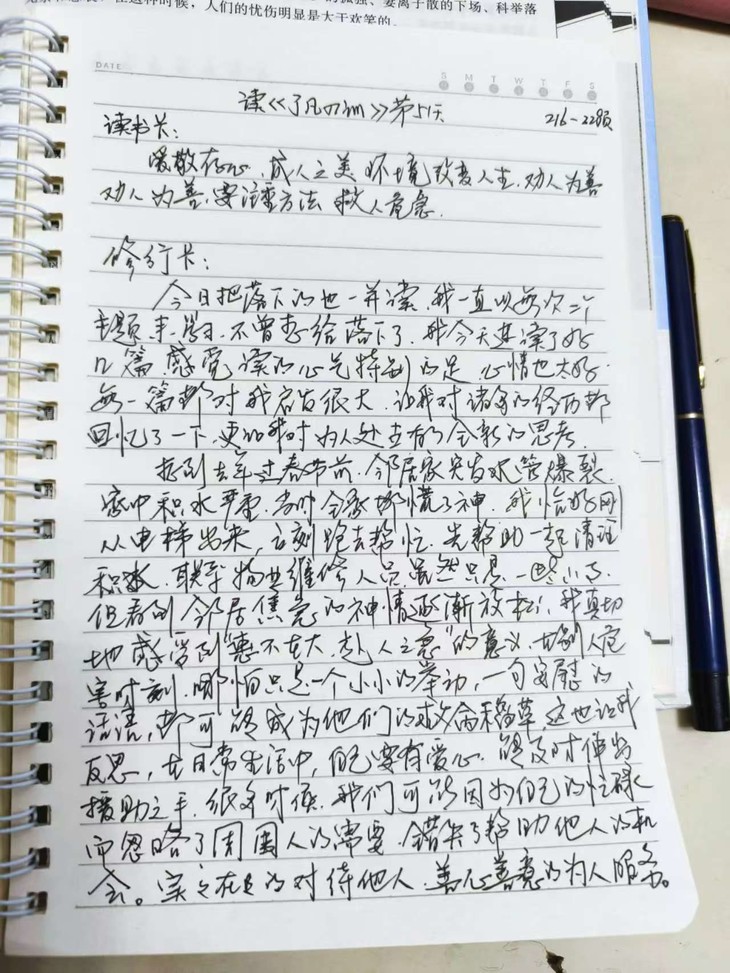 人们的忧伤明显是大于欢笑的。
孤独、妻离子散的下场、科举落
DATE
S M T W T F S
读《了凡四训》第51天 216-228页
读书卡:
爱敬存心、成人之美 环境改变人生、劝人为善
劝人为善、要注重方法 救人危急.
修行卡:
今日把落下的也一并读、我一直以每次一个
主题来学习、不曾想给落下了、我今天共读了好
几篇 感觉读的心气特别的足 心情也太好.
每一篇都对我启发很大、让我对诸多的经历都
回忆了一下、更的我对为人处世有了全新的思考.
想到去年过春节前、邻居家突发水管爆裂、
家中积水严重、当时全家都慌了神、我恰好刚
从电梯出来、立刻跑去帮忙、先帮助一起清理
积水、联系物业维修人员、虽然只是一些小事、
但看到邻居焦急的神情逐渐放松、我真切
地感受到“惠不在大、赴人之急”的意义、在别人危
害时刻、哪怕只是一个小小的举动、一句安慰的
话语,都可能成为他们的救命稻草,这也让我
反思,在日常生活中,自己要有爱心、能及时伸出
援助之手、很多时候、我们可能因为自己的忙碌
而忽略了周围人的需要、错失了帮助他人的机
会。实实在在的对待他人、善心善意的为人服务。